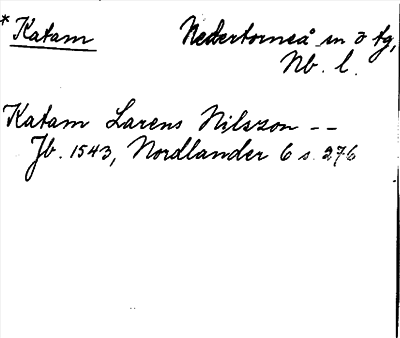 * Katam Nedertorneå sn ö tg,
Nb. l.
Katam Larens Nilszon --
Jb. 1543, Nordlander 6 s. 276